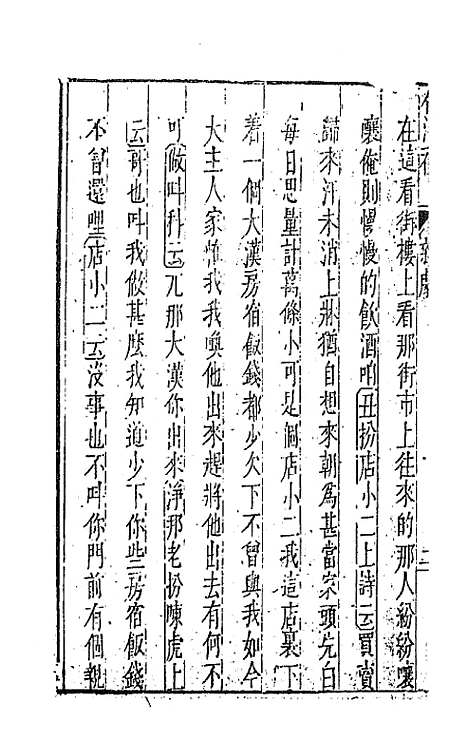 在這看街樓上看那街市上往來的那人紛紛嚷
嚷俺則慢慢的飲酒咱丑扮店小二上詩云買賣
歸來汗未消上牀猶自想來朝爲甚當家頭先白
每日思量計萬條小可是個店小二我這店裏下
着一個大漢房宿飯錢都少欠下不曾與我如今
大主人家怪我我喚他出來趕將他出去有何不
可做叫科云兀那大漢你出來淨那老扮陳虎上
云哥也叫我做甚麽我知道少下你些房宿飯錢
不曾還哩店小二云沒事也不叫你門前有個親